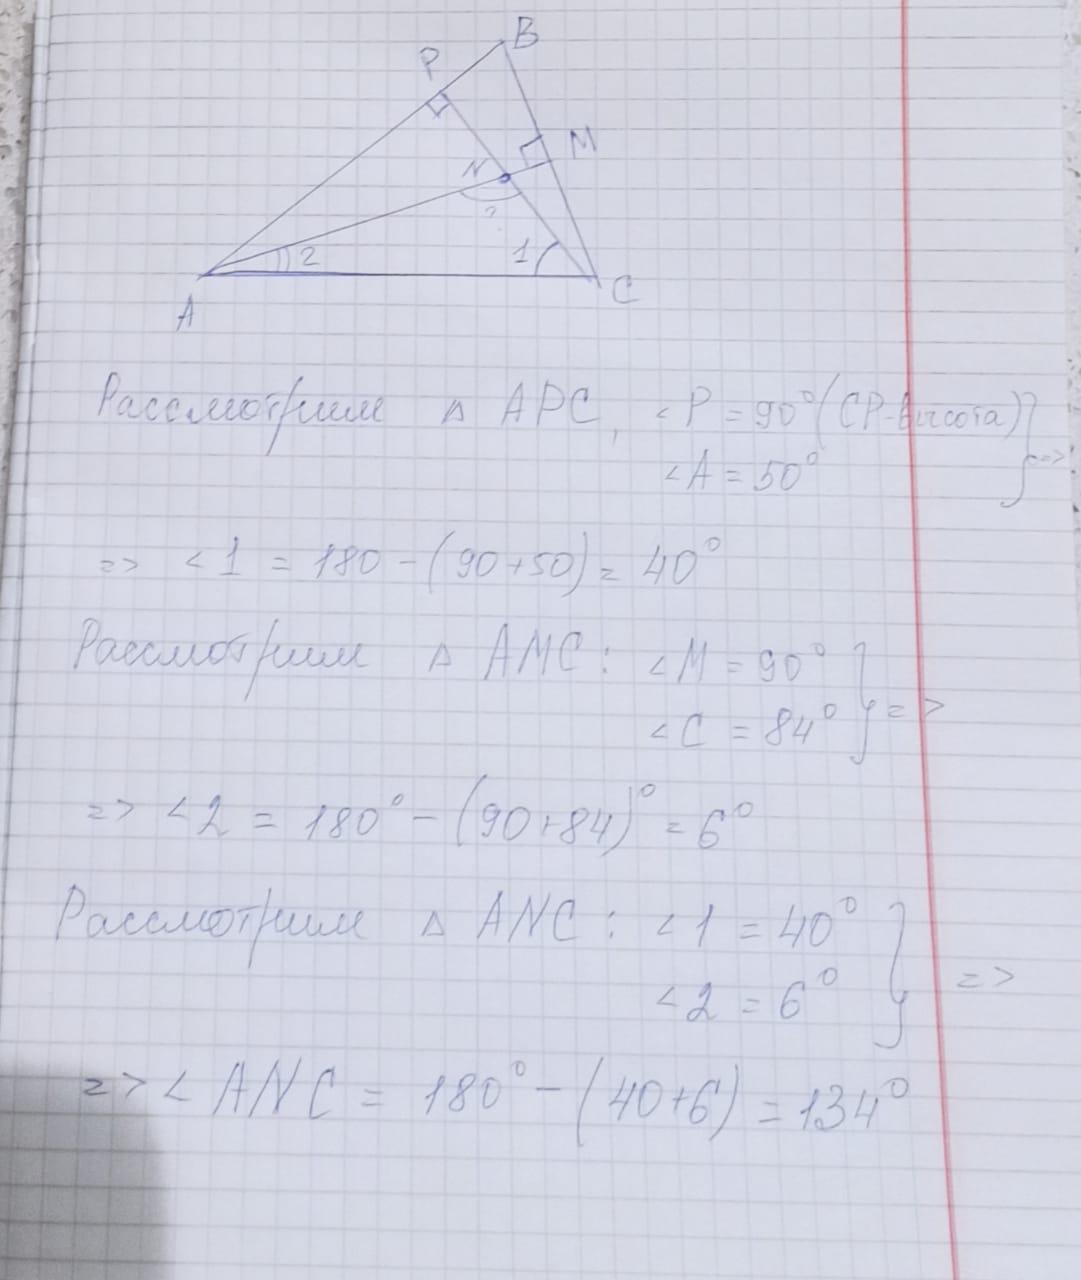 B
P
M
N
?
2
1
C
A
Рассмотрим △ APC, <P = 90° (CP-высота)
<A = 50° } =>
=> <1 = 180 - (90+50) = 40°
Рассмотрим △ AMC: <M = 90°
<C = 84° } =>
=> <2 = 180° - (90+84)° = 6°
Рассмотрим △ ANC: <1 = 40°
<2 = 6° } =>
=> < ANC = 180° - (40+6) = 134°